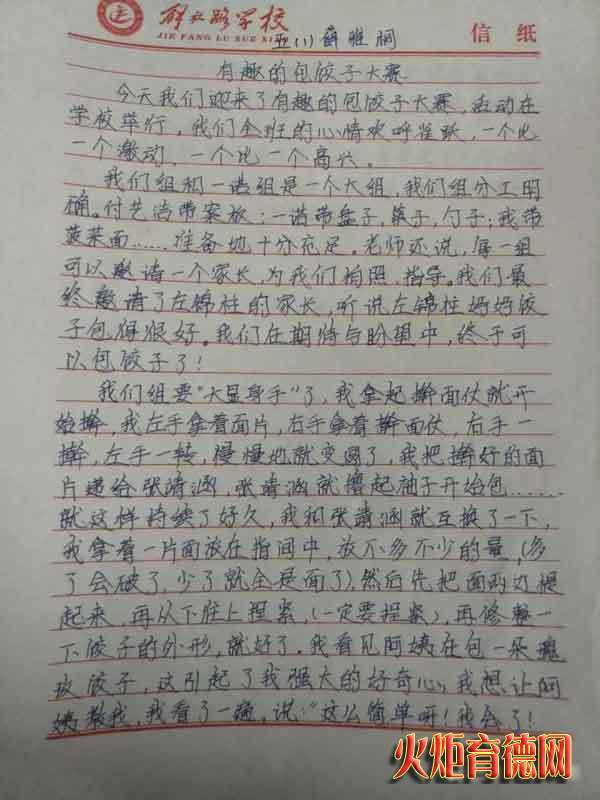 解放路学校 信纸
JIE FANG LU XUE XI
五(1) 薛雅桐
有趣的包饺子大赛
今天我们迎来了有趣的包饺子大赛,活动在
学校举行,我们全班的心情欢呼雀跃,一个比
一个激动,一个比一个高兴。
我们组和一诺组是一个大组,我们组分工明
确。付艺涵带案板;一诺带盘子,筷子,勺子;我带
菠菜面……准备地十分充足。老师还说,每一组
可以邀请一个家长,为我们拍照,指导。我们最
终邀请了左锦柱的家长,听说左锦柱妈妈饺
子包得很好。我们在期待与盼望中,终于可
以包饺子了!
我们组要“大显身手”了,我拿起擀面仗就开
始擀,我左手拿着面片,右手拿着擀面仗,右手一
擀,左手一转,慢慢地就变圆了,我把擀好的面
片递给张清涵,张清涵就撸起袖子开始包……
就这样持续了好久,我和张清涵就互换了一下,
我拿着一片面放在指间中,放不多不少的量,(多
了会破了,少了就全是面了),然后先把面两边捏
起来,再从下往上捏紧,(一定要捏紧),再修整一
下饺子的外形,就好了。我看见阿姨在包一朵瑰
玫饺子,这引起了我强大的好奇心,我想让阿
姨教我,我看了一遍,说:“这么简单呀!我会了!
火炬育德网